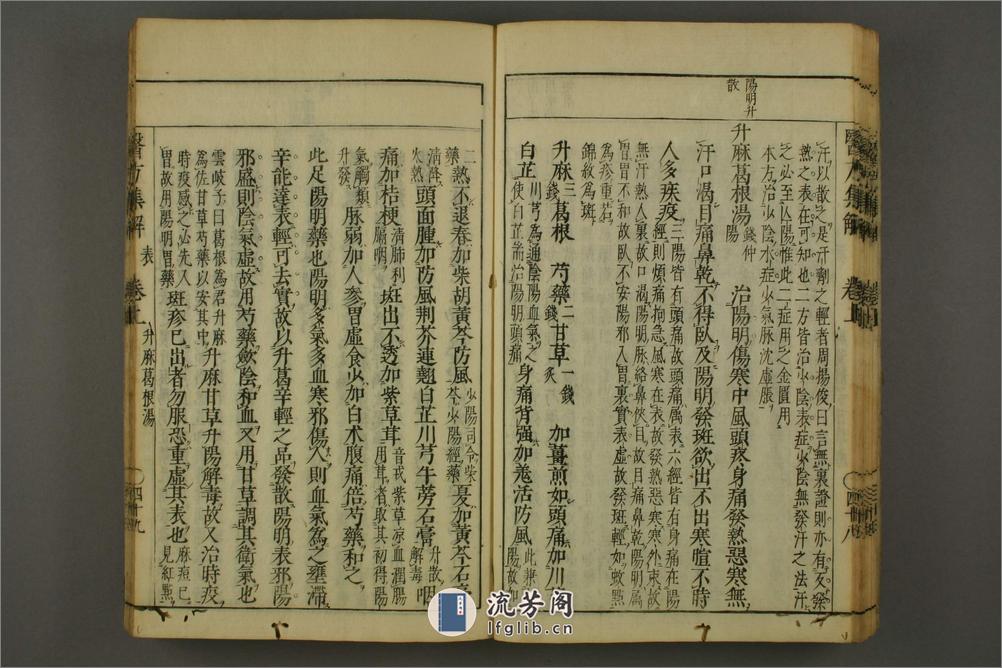 陽明升
散
汗以散之足汗劑之輕者周揚俊曰言無裏證則亦有反發
熱之表在可知也二方皆治少陰表症少陰無發汗之法汗
之必至亡陽惟此二症用之金匱用
本方治少陰水症少氣脉沈虛脹
升麻葛根湯 錢仲陽 治陽明傷寒中風頭疼身痛發熱惡寒無
汗口渴目痛鼻乾不得臥及陽明發斑欲出不出寒暄不時
人多疾疫 三陽皆有頭痛故頭痛属表六經皆有身痛在陽
經則煩痛拘急風寒在表故發熱惡寒寒外束故
無汗熱入裏故口渴陽明脉絡鼻俠目故目痛鼻乾陽明属
胃胃不和故臥不安陽邪入胃裏實表虛故發斑輕如蚊㸃
為疹重若
錦紋為斑
升麻 三錢 葛根 芍藥 二錢 甘草 一錢炙 加薑煎如頭痛加川
白芷 川芎為通陰陽血氣之
使白芷耑治陽明頭痛 身痛背强加羗活防風 此兼
陽故加
二
藥 熱不退春加柴胡黃芩防風 少陽司令柴
芩少陽經藥 夏加黃芩石
清降
火熱 頭面腫加防風荆芥連翹白芷川芎牛蒡石膏 升散
解毒 咽
痛加桔梗 清肺利
膈咽 斑出不透加紫草茸 音戎紫草凉血潤腸
用茸者取其初得陽
氣觸類
升發 脉弱加人參胃虛食少加白术腹痛倍芍藥和之
此足陽明藥也陽明多氣多血寒邪傷人則血氣為之壅滯
辛能達表輕可去實故以升葛辛輕之品發散陽明表邪陽
邪盛則陰氣虛故用芍藥歛陰和血又用甘草調其衛氣也
雲岐子曰葛根為君升麻
為佐甘草芍藥以安其中 升麻甘草升陽解毒故又治時疫
時疫感之必先入
胃故用陽明胃藥 斑疹已出者勿服恐重虛其表也 麻痘已
見紅㸃
醫方集解 表 卷上 升麻葛根湯 四十九
流芳阁
lfglib.cn